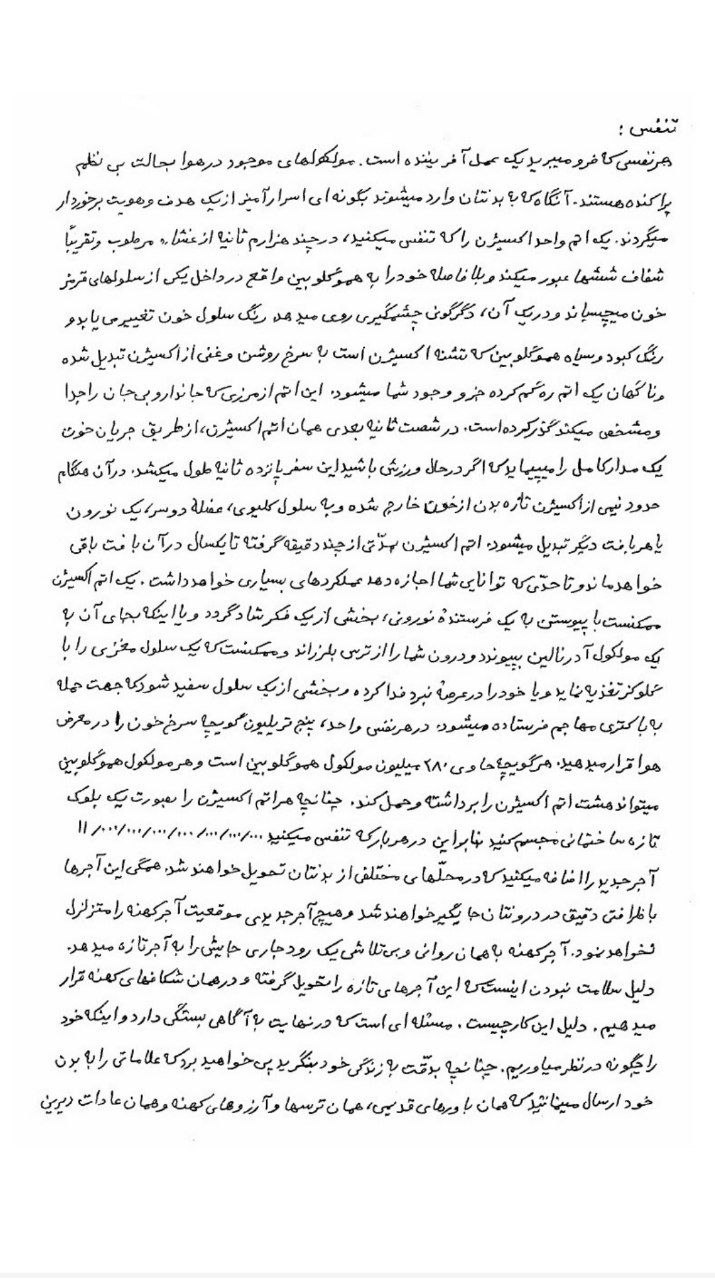 تنفس :
هر نفسی که فرو میبرید یک عمل آفریننده است. مولکولهای موجود در هوا بحالت بی نظم
پراکنده هستند. آنگاه که به بدنتان وارد میشوند بگونه ای اسرارآمیز از یک هدف و هویت برخوردار
میگردند. یک اتم واحد اکسیژن را که تنفس میکنید، در چند هزارم ثانیه از غشاء مرطوب و تقریباً
شفاف ششها عبور میکند و بلافاصله خود را به هموگلوبین واقع در داخل یکی از سلولهای قرمز
خون میچسپاند و در یک آن، دگرگونی چشمگیری روی میدهد. رنگ سلول خون تغییر می یابد و
رنگ کبود و سیاه هموگلوبین که تشنه اکسیژن است به سرخ روشن و غنی از اکسیژن تبدیل شده
و ناگهان یک اتم ره گم کرده جزو وجود شما میشود. این اتم از مرزی که جاندار و بی جان را جدا
و مشخص میکند گذر کرده است. در شصت ثانیه بعدی همان اتم اکسیژن، از طریق جریان خون
یک مدار کامل را میپیماید که اگر در حال ورزش باشید این سفر پانزده ثانیه طول میکشد. در آن هنگام
حدود نیمی از اکسیژن تازه بدن از خون خارج شده و به سلول کلیوی، عضلهٔ دو سر، یک نورون
یا هر بافت دیگر تبدیل میشود. اتم اکسیژن بمدّتی از چند دقیقه گرفته تا یکسال در آن بافت باقی
خواهد ماند و تا حدّی که توانایی شما اجازه دهد عملکردهای بسیاری خواهد داشت. یک اتم اکسیژن
ممکنست با پیوستن به یک فرستندهٔ نورونی، بخشی از یک فکر شاد گردد و یا اینکه بجای آن به
یک مولکول آدرنالین بپیوندد و درون شما را از ترس بلرزاند و ممکنست که یک سلول مغزی را با
گلوکز تغذیه نماید و یا خود را در عرصهٔ نبرد فدا کرده و بخشی از یک سلول سفید شود که جهت حمله
به باکتری مهاجم فرستاده میشود. در هر نفس واحد، پنج تریلیون گویچهٔ سرخ خون را در معرض
هوا قرار میدهید. هر گویچه حاوی ۲۸۰ میلیون مولکول هموگلوبین است و هر مولکول هموگلوبین
میتواند هشت اتم اکسیژن را برداشته و حمل کند. چنانچه هر اتم اکسیژن را بصورت یک بلوک
تازه ساختمانی مجسم کنید بنابراین در هر بار که تنفس میکنید ۱۱/۰۰۰/۰۰۰/۰۰۰/۰۰۰/۰۰۰/۰۰۰/۰۰۰
آجر جدید را اضافه میکنید که در محلّهای مختلفی از بدنتان تحویل خواهند شد. همگی این آجرها
با ظرافتی دقیق در درونتان جایگیر خواهند شد و هیچ آجر جدیدی موقعیت آجر کهنه را متزلزل
نخواهد نمود. آجر کهنه با همان روانی و بی تلاشی یک رود جاری جایش را به آجر تازه میدهد.
دلیل سلامت نبودن اینست که این آجرهای تازه را تحویل گرفته و در همان شکافهای کهنه قرار
میدهیم. دلیل این کار چیست. مسئله ای است که در نهایت به آگاهی بستگی دارد و اینکه خود
را چگونه در نظر میاوریم. چنانچه بدقّت به زندگی خود بنگرید پی خواهید برد که علاماتی را به بدن
خود ارسال مینمائید که همان باورهای قدیمی، همان ترسها و آرزوهای کهنه و همان عادات دیرین